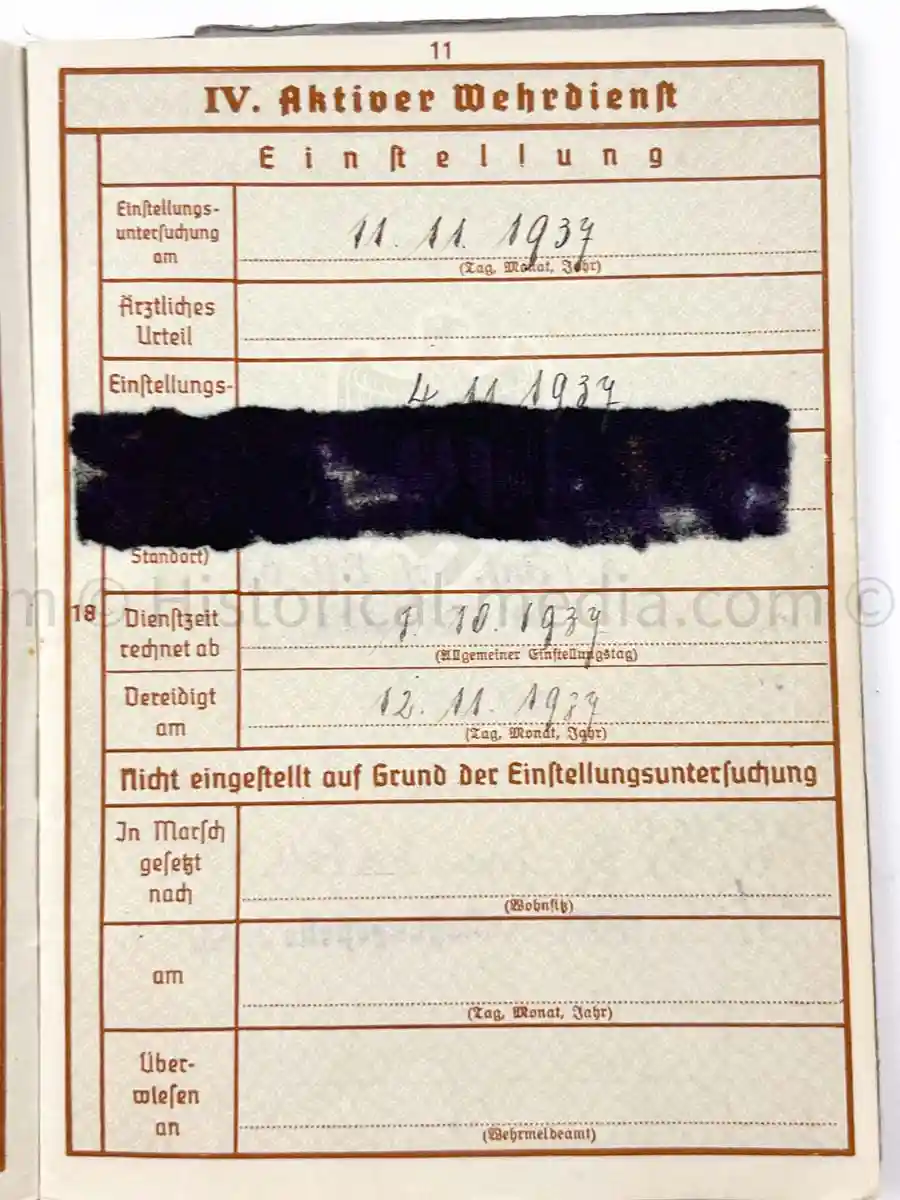 11
IV. Aktiver Wehrdienst
Einstellung
Einstellungs-
untersuchung
am
11. 11. 1937
(Tag, Monat, Jahr)
Ärztliches
Urteil
Einstellungs-
4. 11. 1937
Standort)
© Historical-media.com ©
18
Dienstzeit
rechnet ab
1. 10. 1937
(Allgemeiner Einstellungstag)
Vereidigt
am
12. 11. 1937
(Tag, Monat, Jahr)
Nicht eingestellt auf Grund der Einstellungsuntersuchung
In Marsch
gesetzt
nach
(Wohnsitz)
am
(Tag, Monat, Jahr)
Über-
wiesen
an
(Wehrmeldeamt)